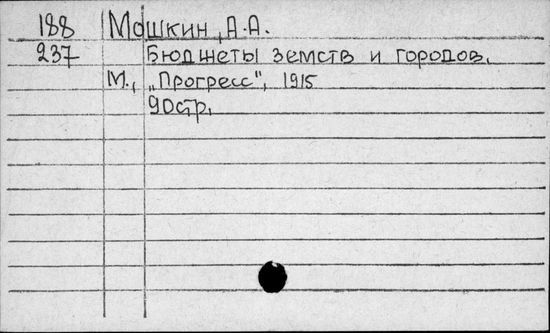 188 Мошкин, А.А.
237 Бюджеты земств и городов.
М., „Прогресс", 1915
90стр.